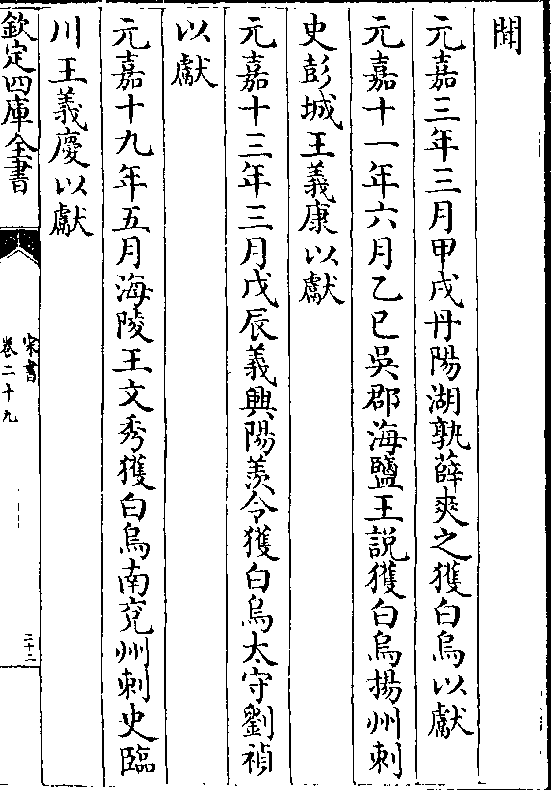 聞
元嘉三年三月甲戌丹陽湖孰薛爽之獲白烏以獻
元嘉十一年六月乙巳吳郡海鹽王説獲白烏揚州刺
史彭城王義康以獻
元嘉十三年三月戊辰義興陽羡令獲白烏太守劉禎
以獻
元嘉十九年五月海陵王文秀獲白烏南兖州刺史臨
川王義慶以獻
欽定四庫全書
宋書
卷二十九
三十二